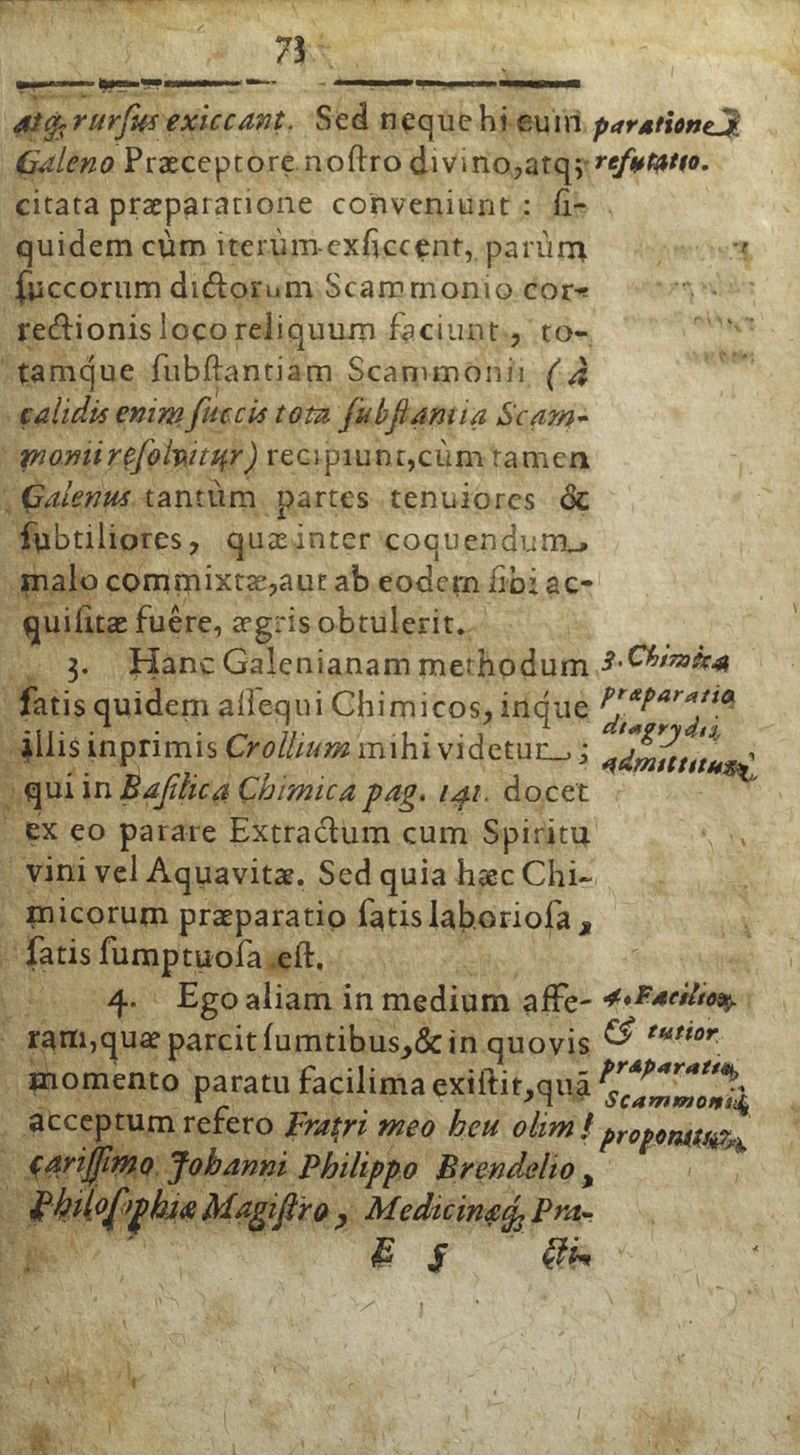 73
atq; rurſus exiccant. Sed neque hi cum
Galeno Præceptore noſtro divino, atq;
citata præparatione conveniunt: ſi-
quidem cùm iterùm exſiccent, parùm
ſuccorum dictorum Scammonio cor-
rectionis loco reliquum faciunt, to-
tamque ſubſtantiam Scammonii (à
calidis enim ſuccis tota ſubſtantia Scam-
monii reſolvitur) recipiunt, cùm tamen
Galenus tantùm partes tenuiores &
ſubtiliores, quæ inter coquendum
malo commixtæ, aut ab eodem ſibi ac-
quiſitæ fuêre, ægris obtulerit.
3. Hanc Galenianam methodum
ſatis quidem aſſequi Chimicos, inque
illis inprimis Crollium mihi videtur;
qui in Baſilica Chimica pag. 141. docet
ex eo parare Extractum cum Spiritu
vini vel Aquavitæ. Sed quia hæc Chi-
micorum præparatio ſatis laborioſa,
ſatis ſumptuoſa eſt.
4. Ego aliam in medium affe-
ram, quæ parcit ſumtibus, & in quovis
momento paratu facilima exiſtit, quā
acceptum refero Fratri meo heu olim!
cariſſimo Johanni Philippo Brendelio,
Philoſophiæ Magiſtro, Medicinæq; Pra-
E 5 cti-
paratione
refutatio.
3. Chimica
præparatio
diagrydii
admittitur.
4. Facilior
& tutior
præparatio
Scammonii
proponitur.